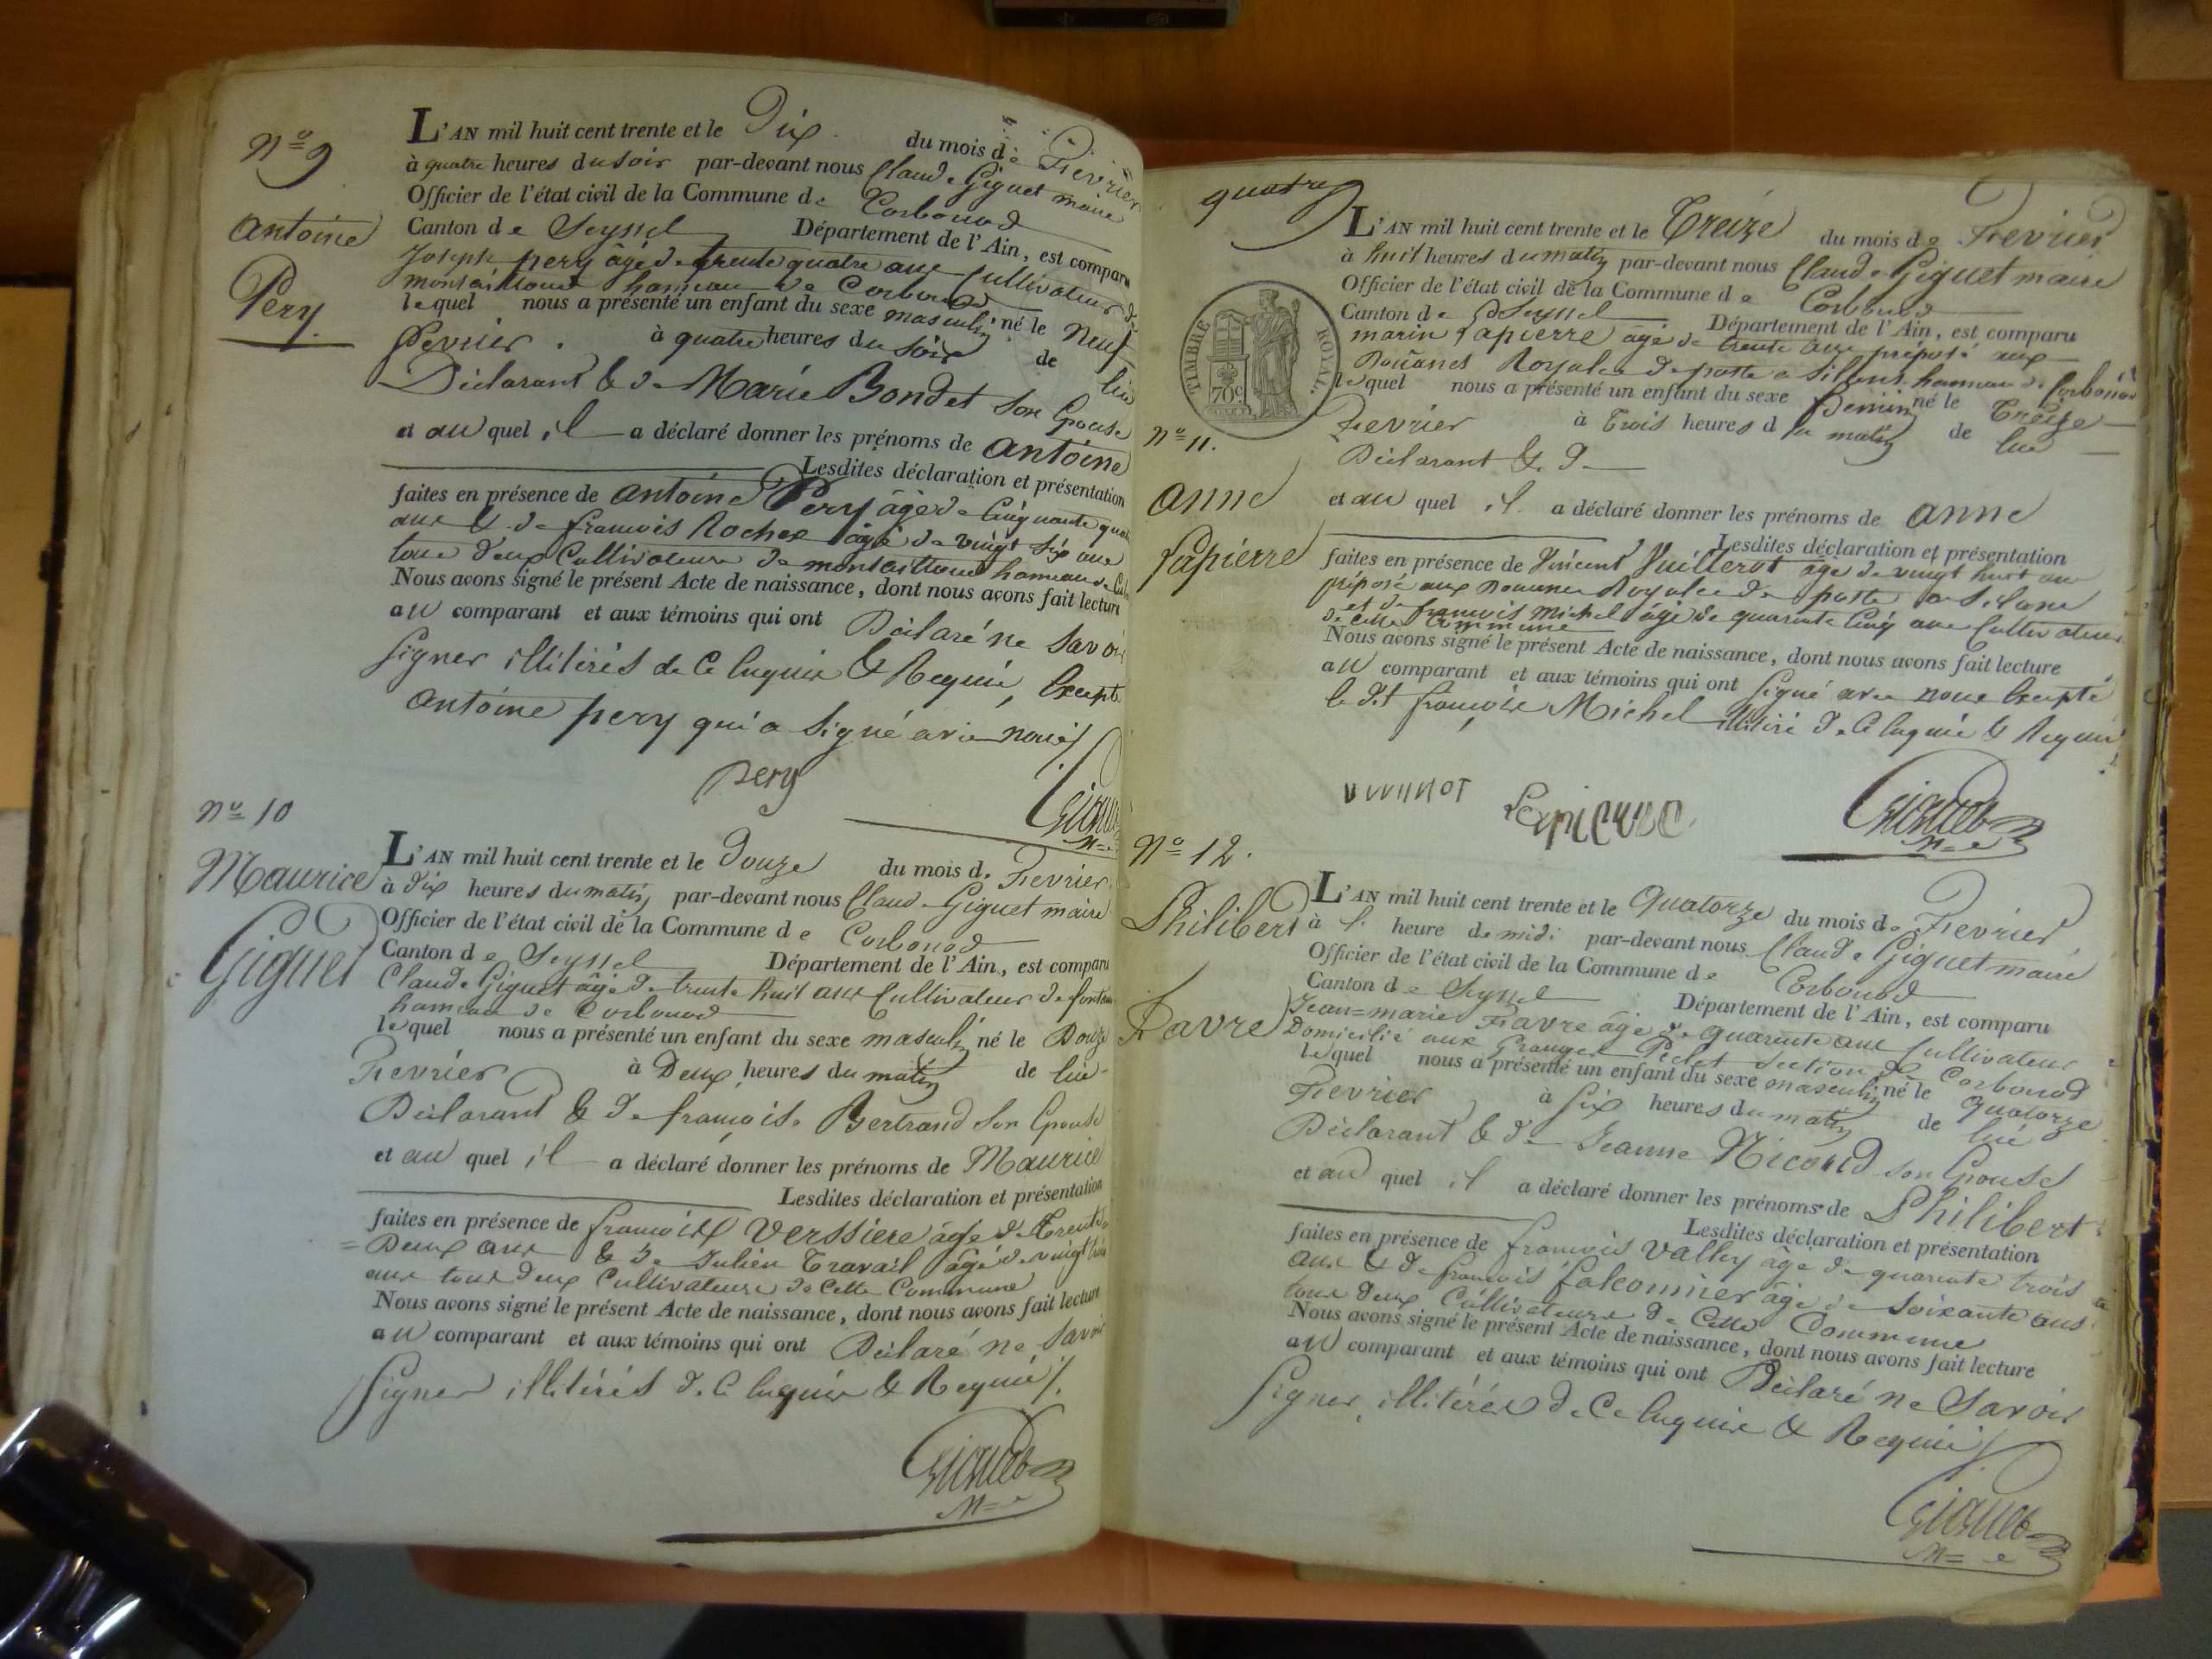 Nº 9
Antoine
Pery.
L'AN mil huit cent trente et le Dix du mois de Fevrier
à quatre heures du soir par-devant nous Claude Giguet maire
Officier de l'état civil de la Commune de Corbonod
Canton de Seyssel Département de l'Ain, est comparu
Joseph pery âgé de trente quatre ans Cultivateur de
hameau de Corbonod
lequel nous a présenté un enfant du sexe masculin né le Neuf
fevrier à quatre heures du soir de lui
Déclarant & de Marie Bondet son Epouse
et au quel il a déclaré donner les prénoms de Antoine
Lesdites déclaration et présentation
faites en présence de antoine Pery âgé de Cinquante quatre
ans & de francois Rochex âgé de vingt six ans
tous deux Cultivateurs de hameau de
Nous avons signé le présent Acte de naissance, dont nous avons fait lecture
au comparant et aux témoins qui ont Déclaré ne Savoir
Signer illitérés de Ce Enquis & Requis, Excepté
antoine pery qui a Signé avec nous
pery
Nº 10
Maurice
Giguet
L'AN mil huit cent trente et le Douze du mois de Fevrier
à dix heures du matin par-devant nous Claude Giguet maire
Officier de l'état civil de la Commune de Corbonod
Canton de Seyssel Département de l'Ain, est comparu
Claude Giguet âgé de trente huit ans Cultivateur de
hameau de Corbonod
lequel nous a présenté un enfant du sexe masculin né le Douze
Fevrier à Deux heures du matin de lui
Déclarant & de françoise Bertrand son Epouse
et au quel il a déclaré donner les prénoms de Maurice
Lesdites déclaration et présentation
faites en présence de francois Verssiere âgé de Trente
= Deux ans & de Julien Travail âgé de vingt
ans tous deux Cultivateurs de Cette Commune
Nous avons signé le présent Acte de naissance, dont nous avons fait lecture
au comparant et aux témoins qui ont Déclaré ne Savoir
Signer illitérés de Ce Enquis & Requis
quatre
L'AN mil huit cent trente et le Treize du mois de Fevrier
à huit heures du matin par-devant nous Claude Giguet maire
Officier de l'état civil de la Commune de Corbonod
Canton de Seyssel Département de l'Ain, est comparu
marin Lapierre âgé de trente ans préposé aux
Douanes Royales de poste a Silans hameau de Corbonod
lequel nous a présenté un enfant du sexe feminin né le Treize
Fevrier à Trois heures du matin de lui
Déclarant & de
et au quel il a déclaré donner les prénoms de anne
Lesdites déclaration et présentation
faites en présence de Vincent Vuillerot âgé de vingt huit ans
préposé aux Douanes Royales de poste a Silans
et de francois Michel âgé de quarante Cinq ans Cultivateur
de Cette Commune
Nous avons signé le présent Acte de naissance, dont nous avons fait lecture
au comparant et aux témoins qui ont Signé avec nous Excepté
le dit françois Michel illitéré de Ce Enquis & Requis
TIMBRE ROYAL.
70c
Nº 11.
anne
Lapierre
Lapierre
Giguet
Nº 12.
Philibert
Favre
L'AN mil huit cent trente et le Quatorze du mois de Fevrier
à l' heure de midi par-devant nous Claude Giguet maire
Officier de l'état civil de la Commune de Corbonod
Canton de Seyssel Département de l'Ain, est comparu
Jean=marie Favre âgé de quarante ans Cultivateur
Domicilié aux Granges section de Corbonod
lequel nous a présenté un enfant du sexe masculin né le Quatorze
Fevrier à Six heures du matin de lui
Déclarant & de Jeanne Nicoud son Epouse
et au quel il a déclaré donner les prénoms de Philibert
Lesdites déclaration et présentation
faites en présence de francois Vallry âgé de quarante trois
ans & de francois falconnier âgé de Soixante ans
tous deux Cultivateurs de Cette Commune
Nous avons signé le présent Acte de naissance, dont nous avons fait lecture
au comparant et aux témoins qui ont Déclaré ne Savoir
Signer illitérés de Ce Enquis & Requis
Giguet